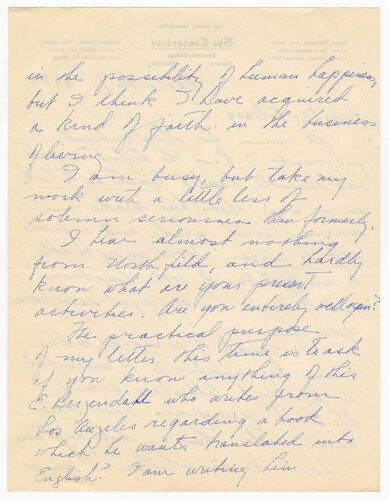 The Concordian
in the possibility of human happiness,
but I think I have acquired
a kind of faith in the business
of living.
I am busy, but take my
work with a little less of
solemn seriousness than formerly.
I hear almost nothing
from Northfield, and hardly
know what are your present
activities. Are you entirely well again?
The practical purpose
of my letter this time is to ask
if you know anything of this
E. Bergendahl who writes from
Los Angeles regarding a book
which he wants translated into
English? I am writing him